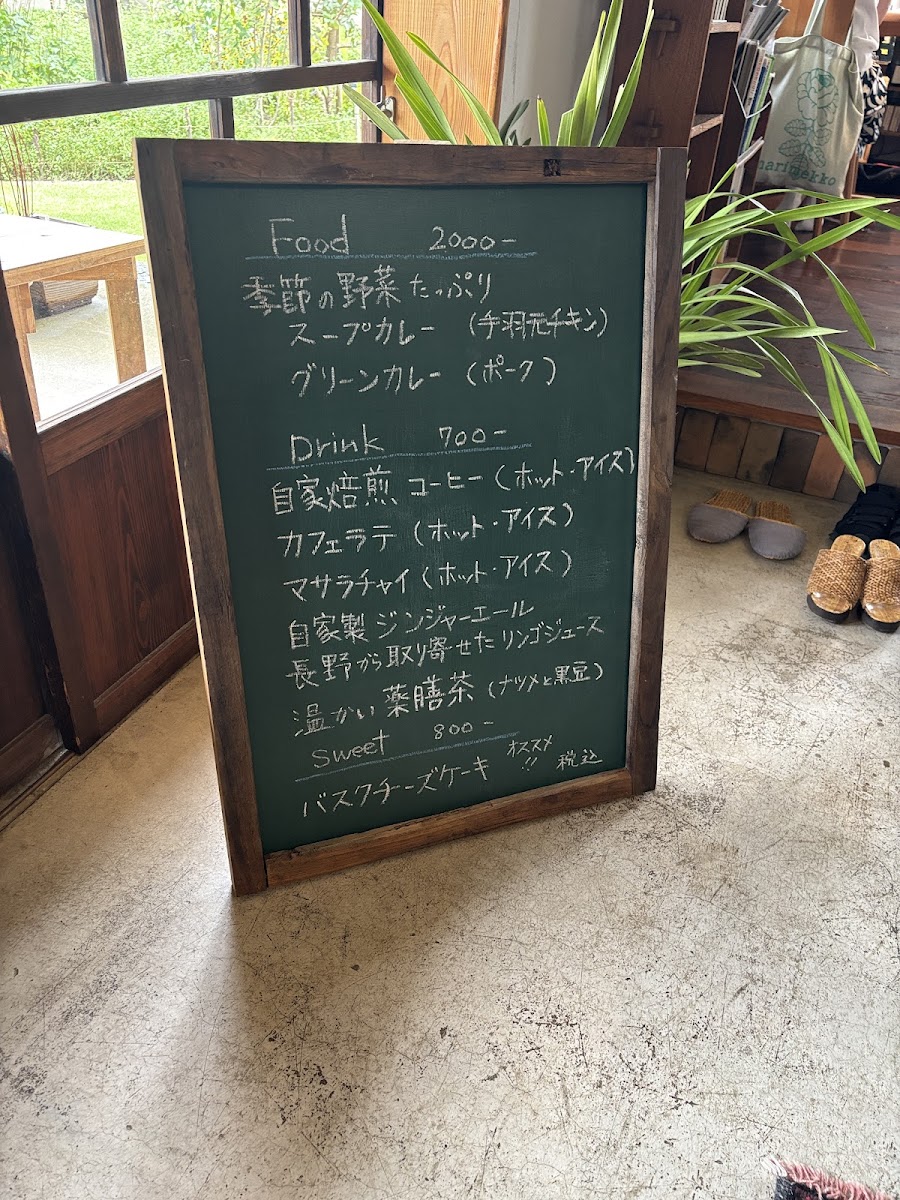 Food 2000-
季節の野菜たっぷり
スープカレー (手羽元チキン)
グリーンカレー (ポーク)
Drink 700-
自家焙煎 コーヒー (ホット・アイス)
カフェラテ (ホット・アイス)
マサラチャイ (ホット・アイス)
自家製 ジンジャーエール
長野から取り寄せたリンゴジュース
温かい 薬膳茶 (ナツメと黒豆)
Sweet 800-
バスクチーズケーキ オススメ!! 税込
marimekko